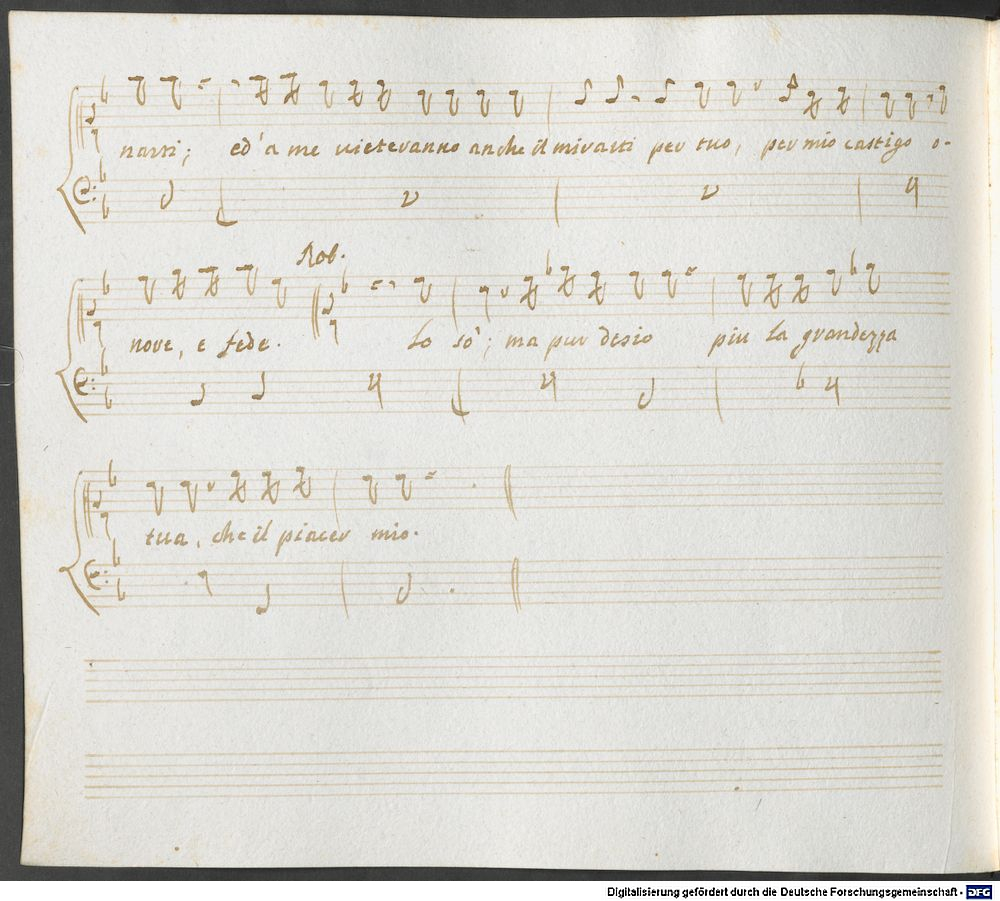 narti; ed'a me vieteranno anche il mirarti per tuo, per mio castigo o-
Rob.
nore, e fede. Lo sò; ma pur desio piu la grandezza
tua, che il piacer mio.
Digitalisierung gefördert durch die Deutsche Forschungsgemeinschaft - DFG